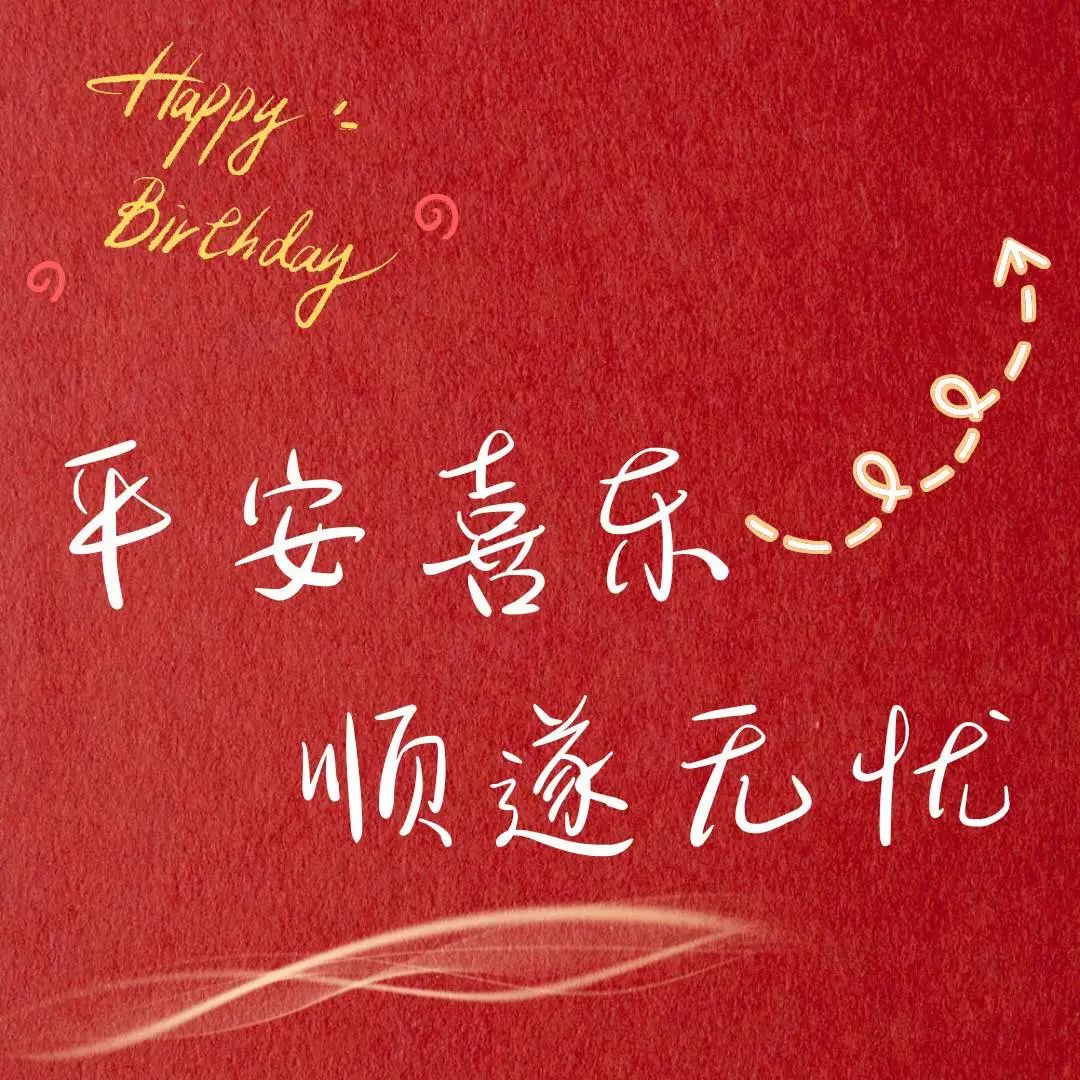 Happy
Birthday
平安喜乐
顺遂无忧